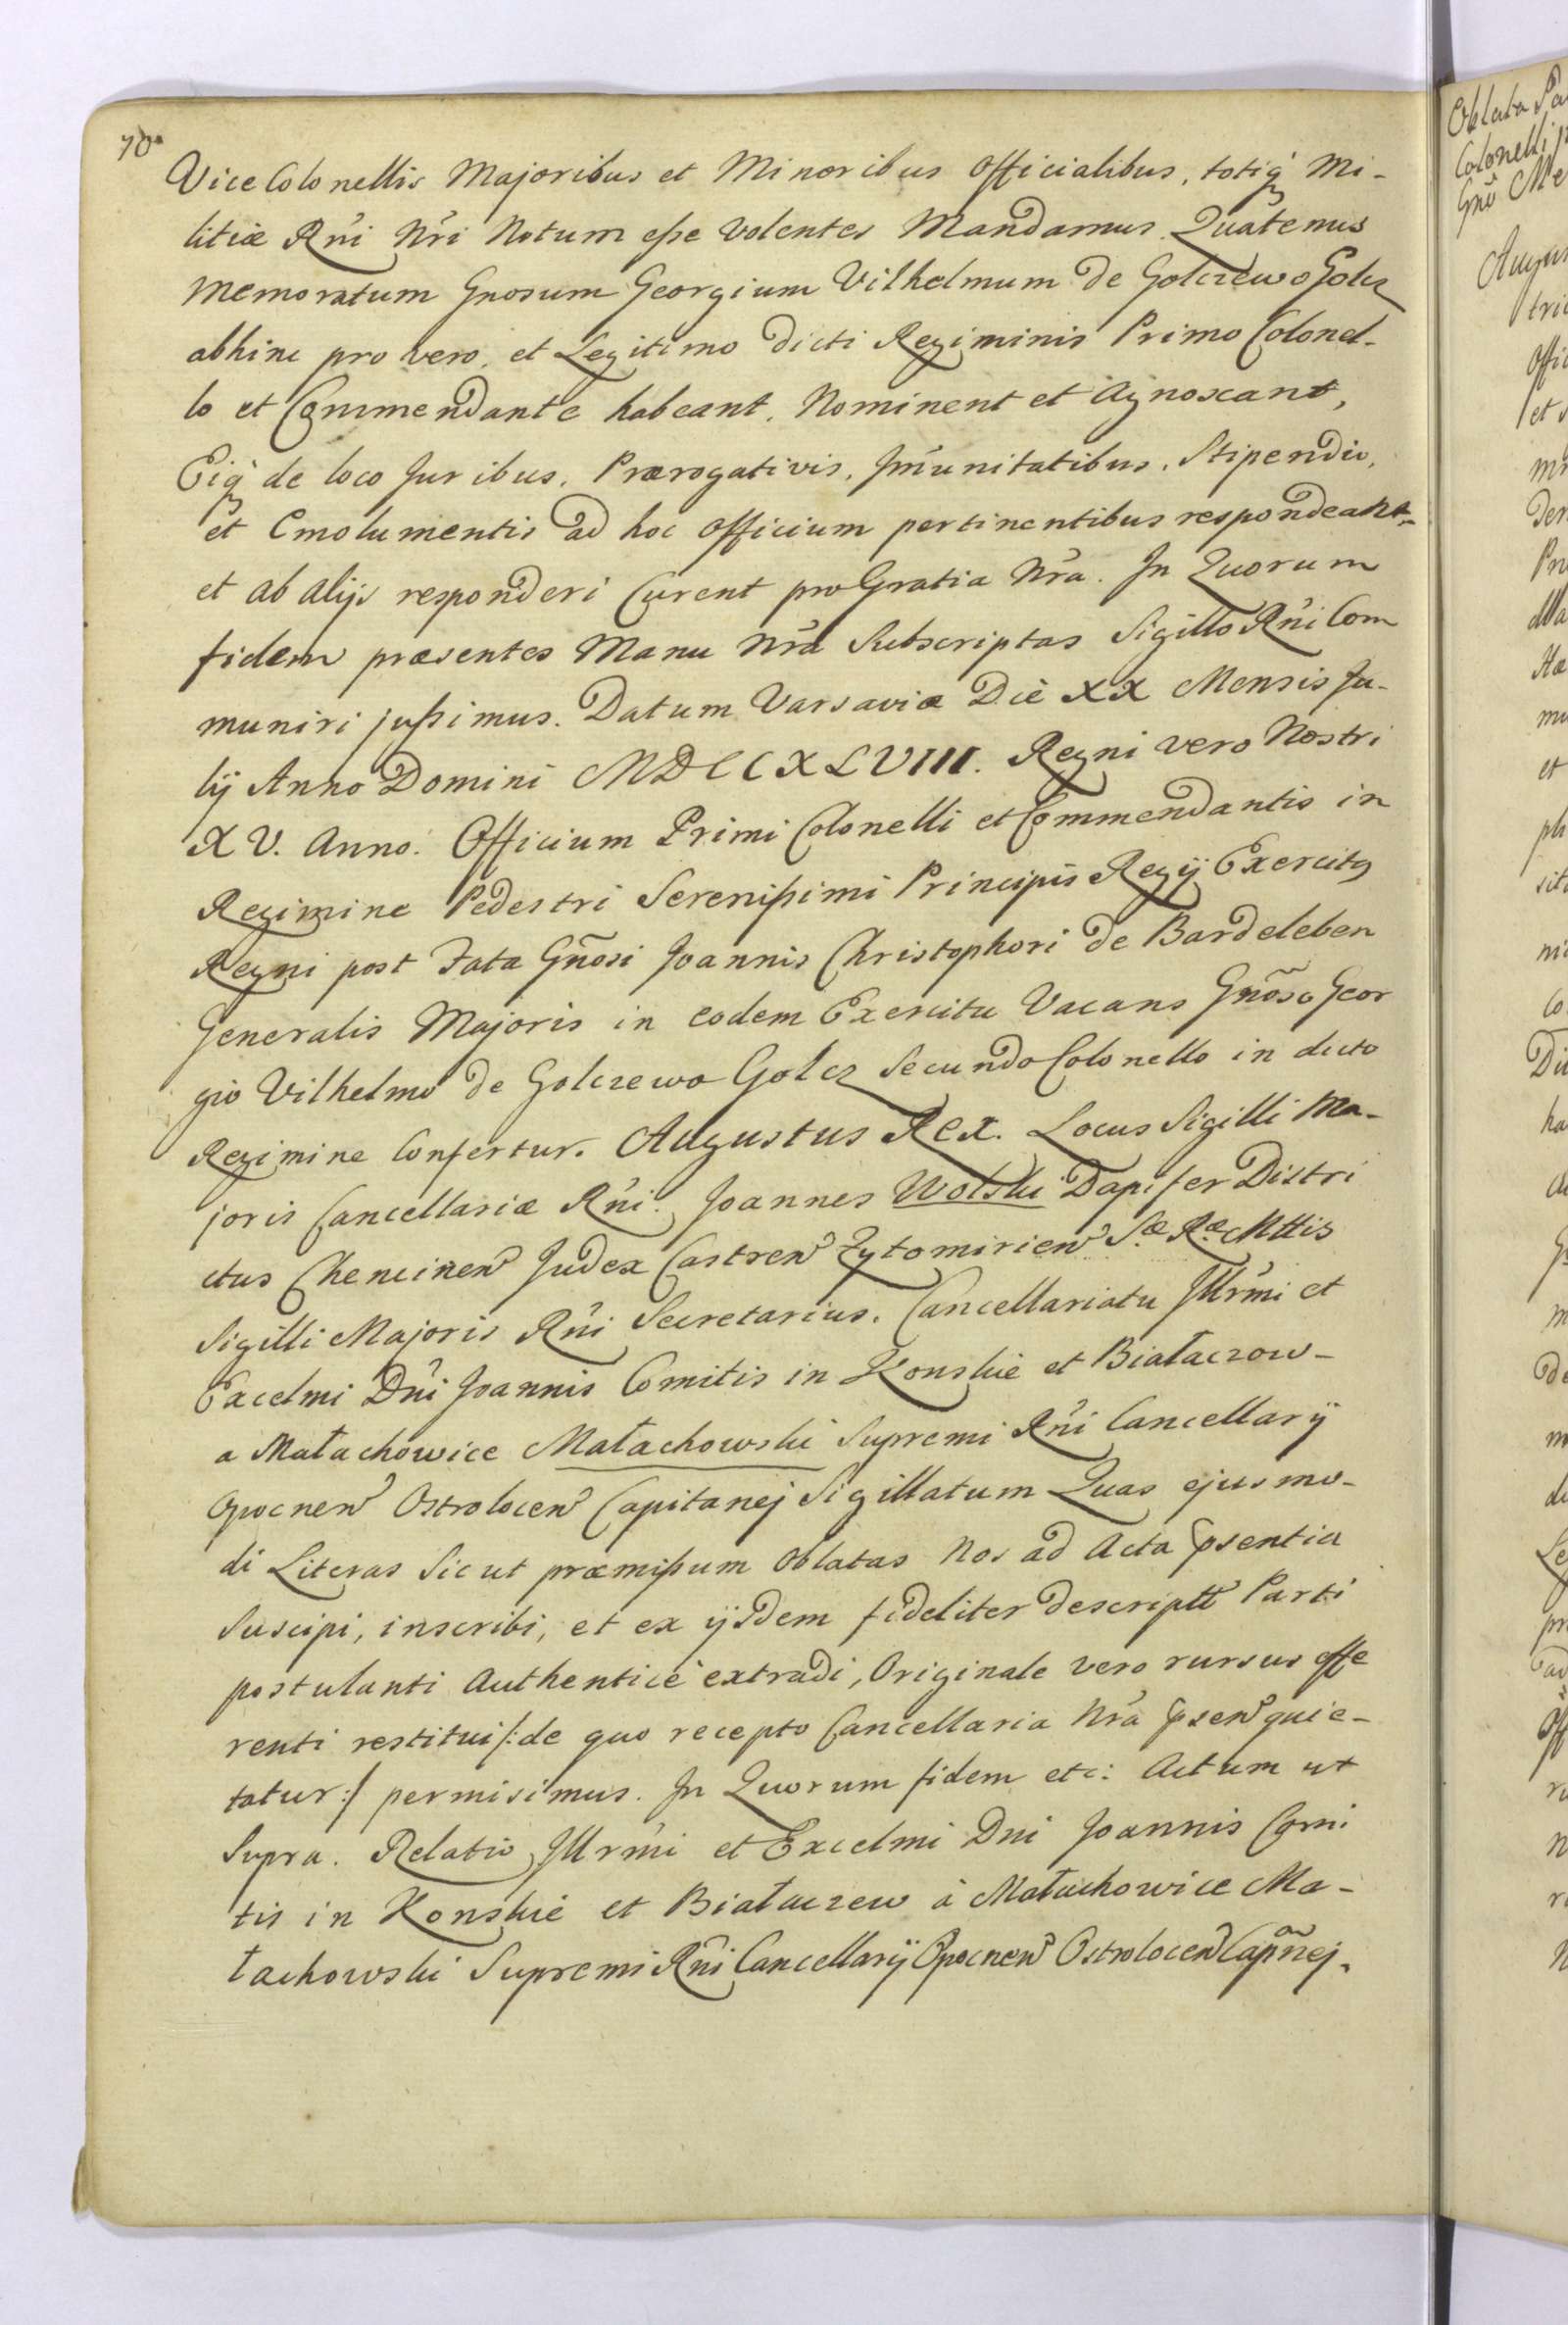 70
Vice Colonellis Majoribus et Minoribus Officialibus, totiq́ Mi-
litiæ Rńi Nŕi Notum eße volentes Mandamus Quatenus
Memoratum Gnosum Georgium Vilhelmum de Golczewo Golcz
abhinc pro vero, et Legitimo dicti Regiminis Primo Colonel-
lo et Commendante habeant, Nominent et Agnoscant,
Eiq́ de loco Juribus, Prærogativis, Jm̃unitatibus, Stipendio,
et Emolumentis ad hoc Officium pertinentibus respondeant,
et ab alijs responderi Curent pro Gratia Nŕa. Jn Quorum
fidem præsentes Manu Nŕa Subscriptas Sigillo Rńi Com
muniri jußimus. Datum Varsaviæ Die XX Mensis Ju-
lÿ Anno Domini MDCCXLVIII. Regni vero Nostri
XV. Anno. Officium Primi Colonelli et Commendantis in
Regimine Pedestri Serenißimi Principis Regÿ Exercitg
Regni post Fata Gñosi Joannis Christophori de Bardeleben
Generalis Majoris in eodem Exercitu Vacans Gñoso Geor
gio Vilhelmo de Golczewo Golcz Secundo Colonello in dicto
Regimine Confertur. Augustus Rex. Locus Sigilli Ma-
joris Cancellariæ Rńi. Joannes Wolski Dapifer Distri
ctus Chencinen Judex Castren Zytomirien Sæ Ræ Mttis
Sigilli Majoris Rńi Secretarius. Cancellariatu Jllrḿi et
Excelmi Dńi Joannis Comitis in Konskie et Białaczow-
a Małachowice Małachowski Supremi Rńi Cancellarÿ
Opocnen Ostrolocen Capitanej Sigillatum Quas ejusmo-
di Literas Sicut præmißum Oblatas Nos ad Acta psentia
Suscipi, inscribi, et ex ÿsdem fideliter descriptt Parti
postulanti Authenticè extradi, Originale vero rursus offe
renti restitui /:de quo recepto Cancellaria Nŕa psen quie-
tatur:/ permisimus. Jn Quorum fidem etc: Actum ut
Supra. Relatio Jllrḿi et Excelmi Dni Joannis Comi
tis in Konskie et Białaczew à Małachowice Ma-
łachowski Supremi Rńi Cancellarÿ Opocnen Ostrolocen Capñej.
Oblata
Colonelli
Gnõ